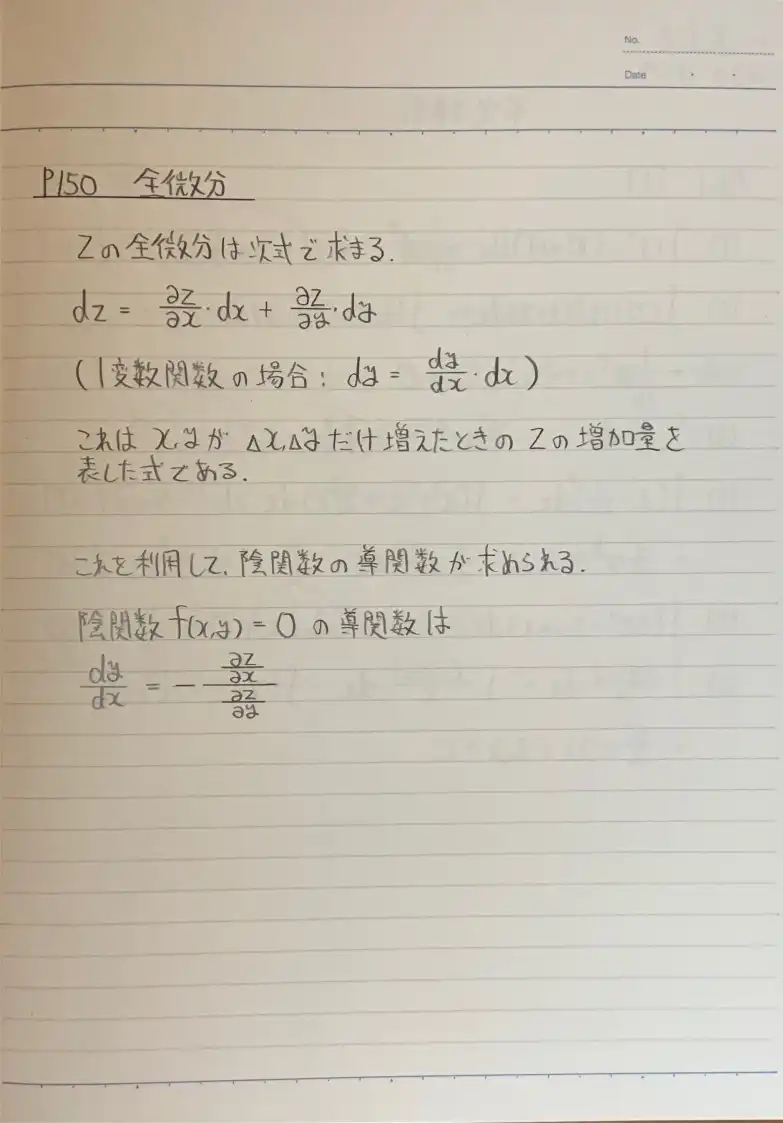 No.
Date
P150 全微分
Zの全微分は次式で求まる.
dz = ∂z/∂x・dx + ∂z/∂y・dy
(1変数関数の場合: dy = dy/dx・dx)
これは x,yが Δx,Δyだけ増えたときの Zの増加量を
表した式である.
これを利用して、陰関数の導関数が求められる.
陰関数 f(x,y) = 0 の導関数は
dy/dx = - (∂z/∂x)/(∂z/∂y)